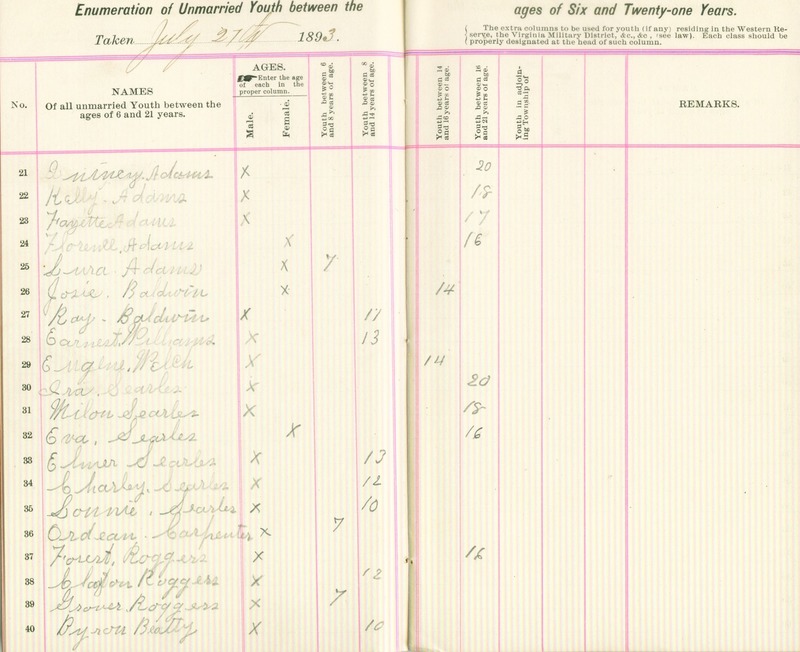 Enumeration of Unmarried Youth between the ages of Six and Twenty-one Years.
Taken July 27th 1893.
{ The extra columns to be used for youth (if any) residing in the Western Re-
serve, the Virginia Military District, &c., &c , (see law). Each class should be
properly designated at the head of such column.
No.
NAMES
Of all unmarried Youth between the
ages of 6 and 21 years.
AGES.
☛ Enter the age
of each in the
proper column.
Male.
Female.
Youth between 6
and 8 years of age.
Youth between 8
and 14 years of age.
Youth between 14
and 16 years of age.
Youth between 16
and 21 years of age.
Youth in adjoin-
ing Township of
REMARKS.
21 Adams X 20
22 Kelly. Adams X 18
23 Fayette Adams X 17
24 Florence, Adams X 16
25 Lura Adams X 7
26 Josie. Baldwin X 14
27 Ray - Baldwin X 11
28 Earnest, Williams X 13
29 Eugene, Welch X 14
30 Ira, Searles X 20
31 Milon Searles X 18
32 Eva, Searles X 16
33 Elmer Searles X 13
34 Charley, Searles X 12
35 Lonnie, Searles X 10
36 Ordean - Carpenter X 7
37 Forest, Roggers X 16
38 Clayton Roggers X 12
39 Grover, Roggers X 7
40 Byron Beatty X 10